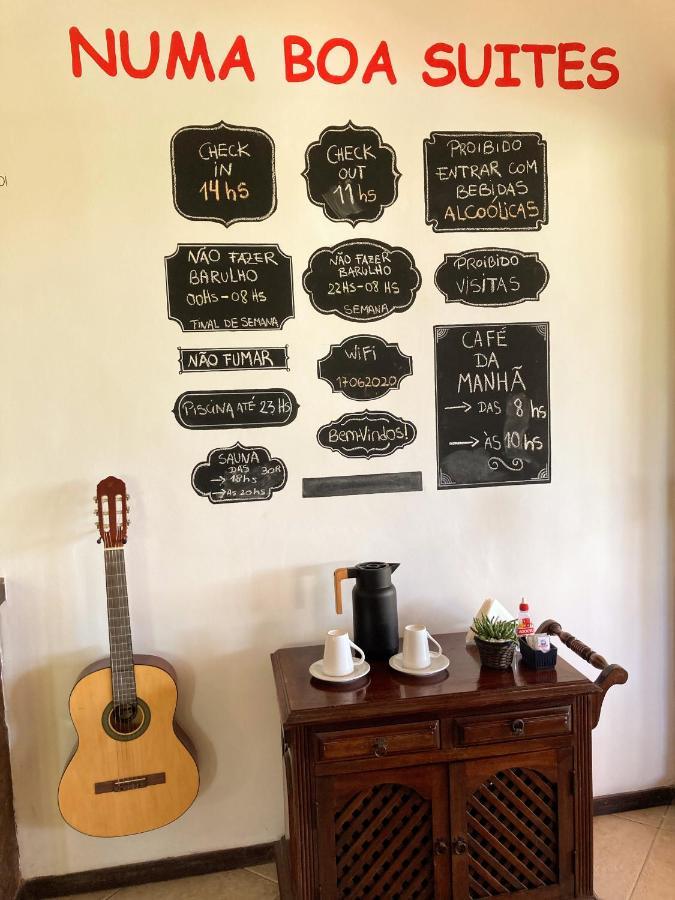 NUMA BOA SUITES
CHECK
IN
14 hs
CHECK
OUT
11 hs
PROIBIDO
ENTRAR COM
BEBIDAS
ALCOÓLICAS
NÃO FAZER
BARULHO
00HS-08 HS
FINAL DE SEMANA
NÃO FAZER
BARULHO
22HS-08 HS
SEMANA
PROIBIDO
VISITAS
NÃO FUMAR
WIFI
17062020
CAFÉ
DA
MANHÃ
→ DAS 8 hs
→ ÀS 10 hs
PISCINA ATÉ 23 HS
BEM-VINDOS!
SAUNA
DAS
→ 18hs
→ ÀS 20hs